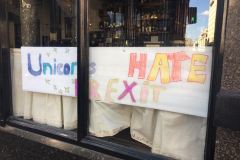 Unicorns HATE
BREXIT